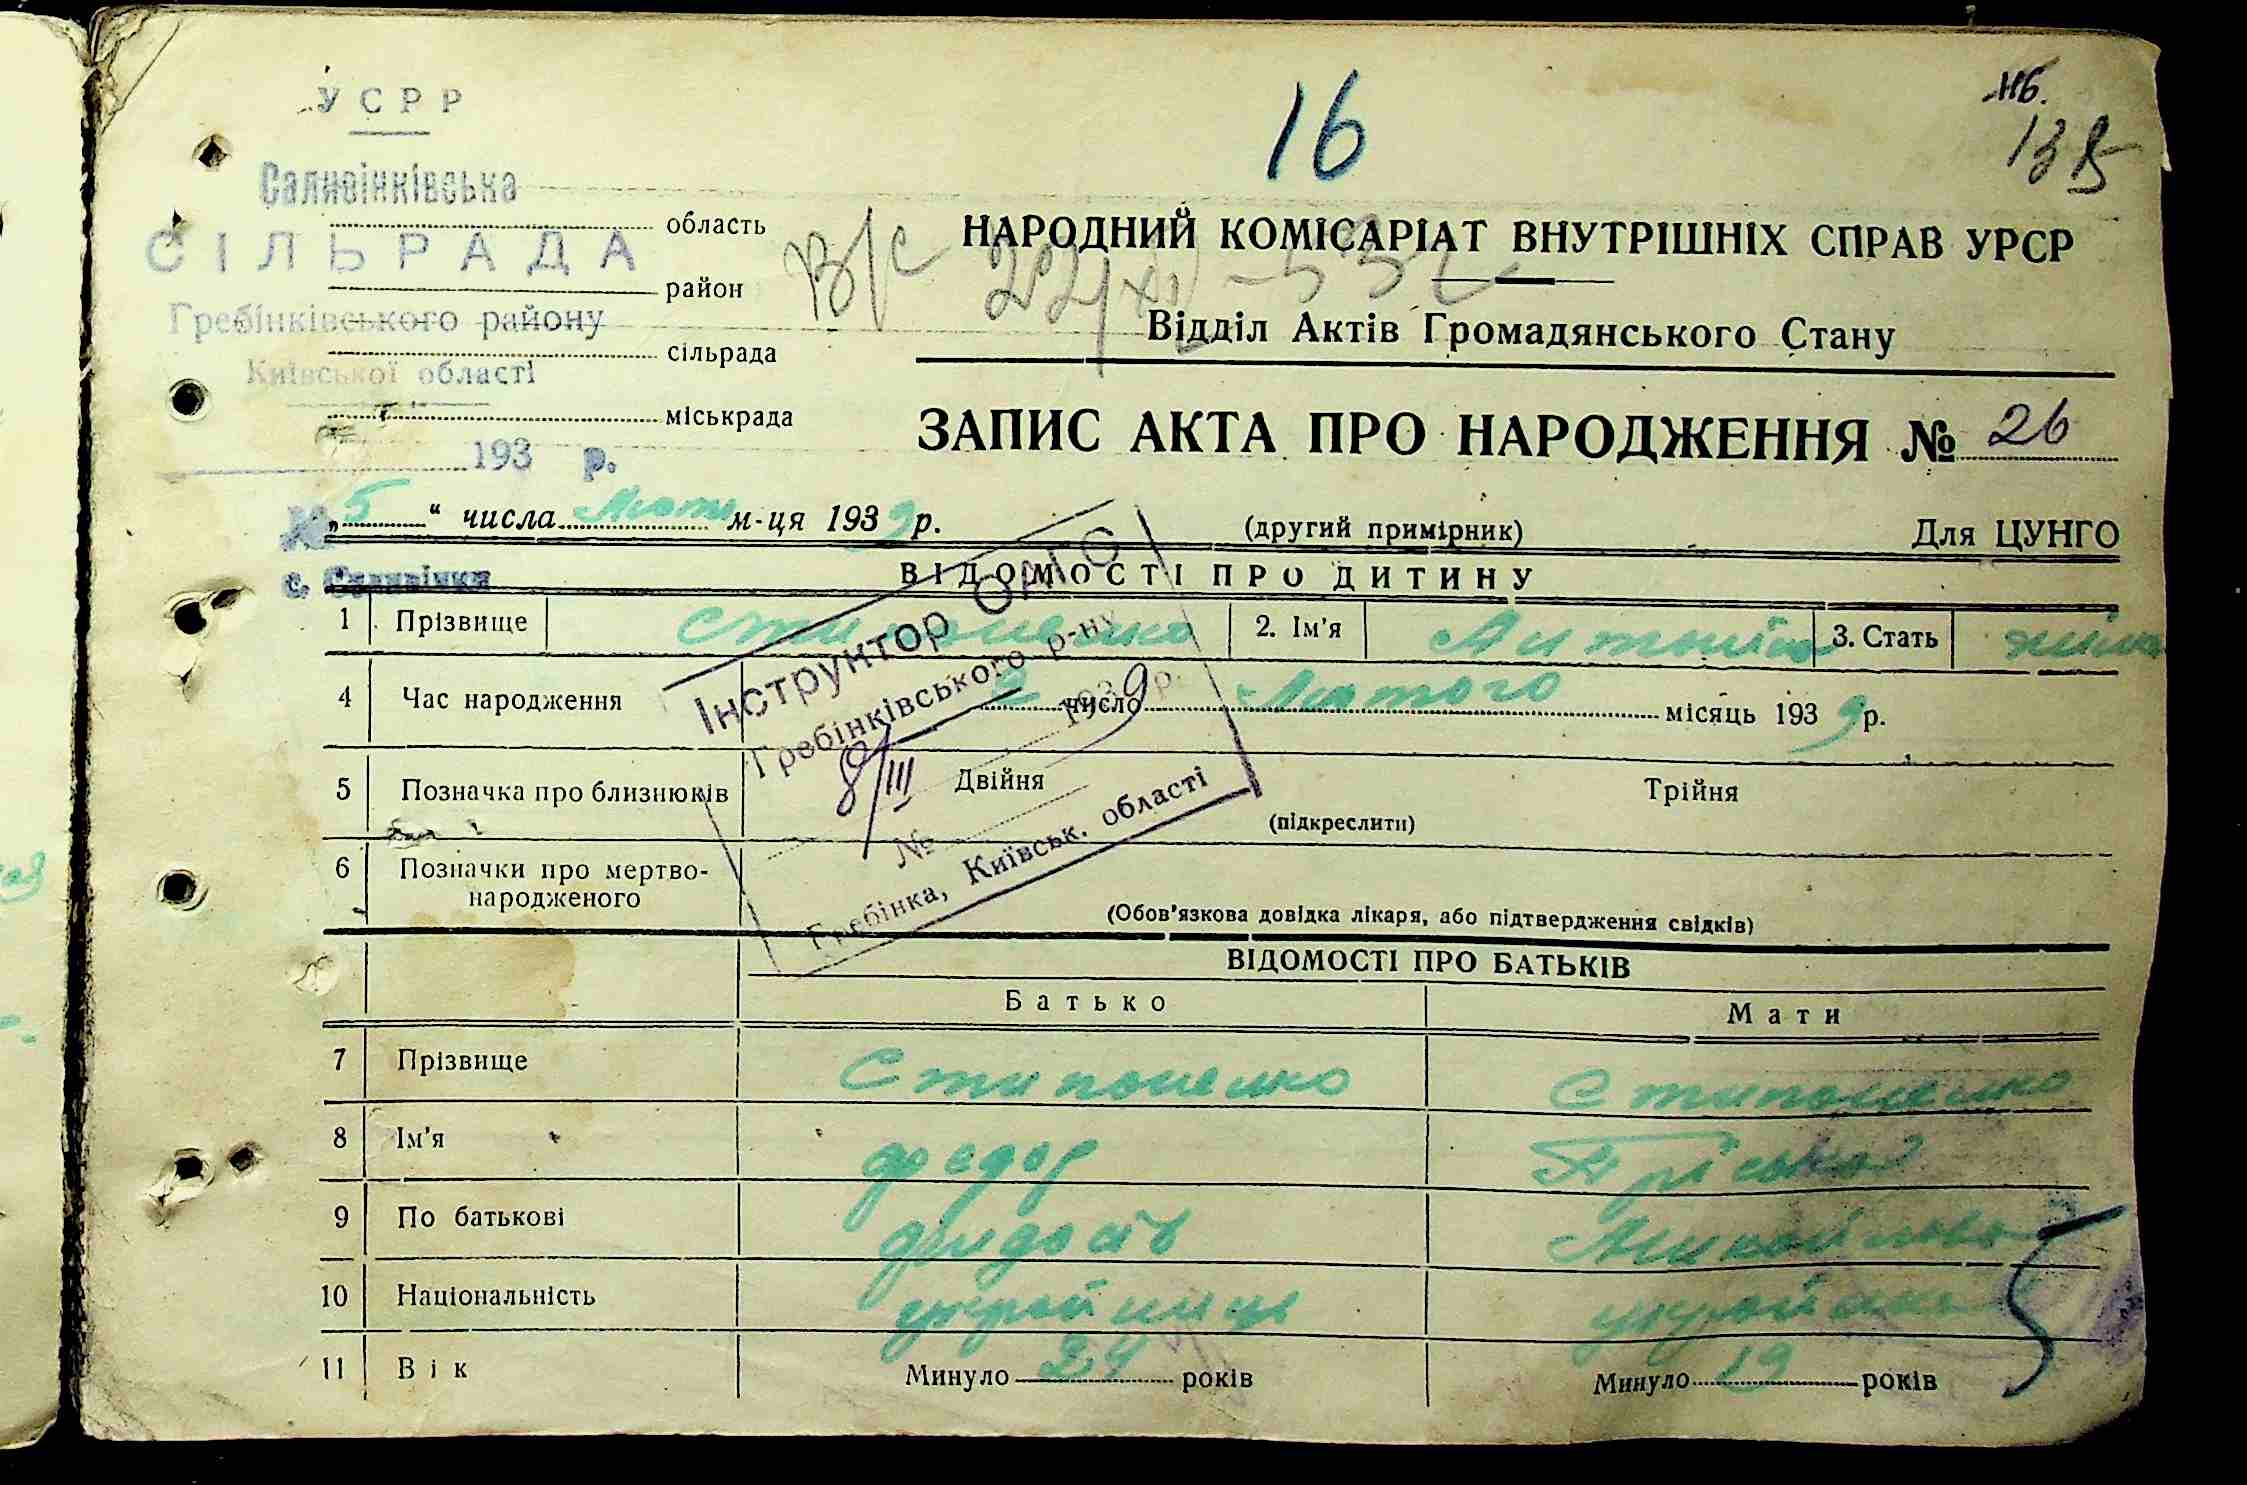 УСРР
16
116.
135
Саливінківська
область
СІЛЬРАДА
район
Гребінківського району
сільрада
Київської області
міськрада
193 р.
В/с 22/XII
НАРОДНИЙ КОМІСАРІАТ ВНУТРІШНІХ СПРАВ УРСР
Відділ Актів Громадянського Стану
ЗАПИС АКТА ПРО НАРОДЖЕННЯ № 26
„5“ числа м-ця 1939 р.
(другий примірник)
Для ЦУНГО
с. Саливінки
ВІДОМОСТІ ПРО ДИТИНУ
1 Прізвище Стипоненко 2. Ім'я Антоніна 3. Стать жіноч
4 Час народження 2 число Лютого місяць 1939 р.
5 Позначка про близнюків Двійня Трійня
(підкреслити)
6 Позначки про мертво-
народженого
(Обов'язкова довідка лікаря, або підтвердження свідків)
Інструктор ОАГС
Гребінківського р-ну
8/III 1939 р.
№
Гребінка, Київськ. області
ВІДОМОСТІ ПРО БАТЬКІВ
Батько Мати
7 Прізвище Стипоненко Стипоненко
8 Ім'я Федор Пріська
9 По батькові
10 Національність українець українка
11 Вік Минуло 24 років Минуло 19 років
5